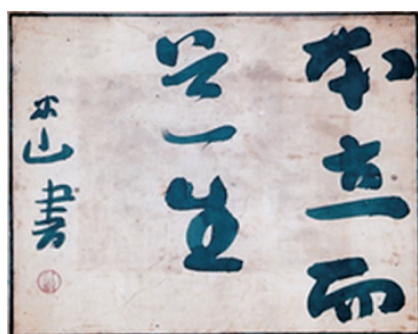 本立而
道生
山書